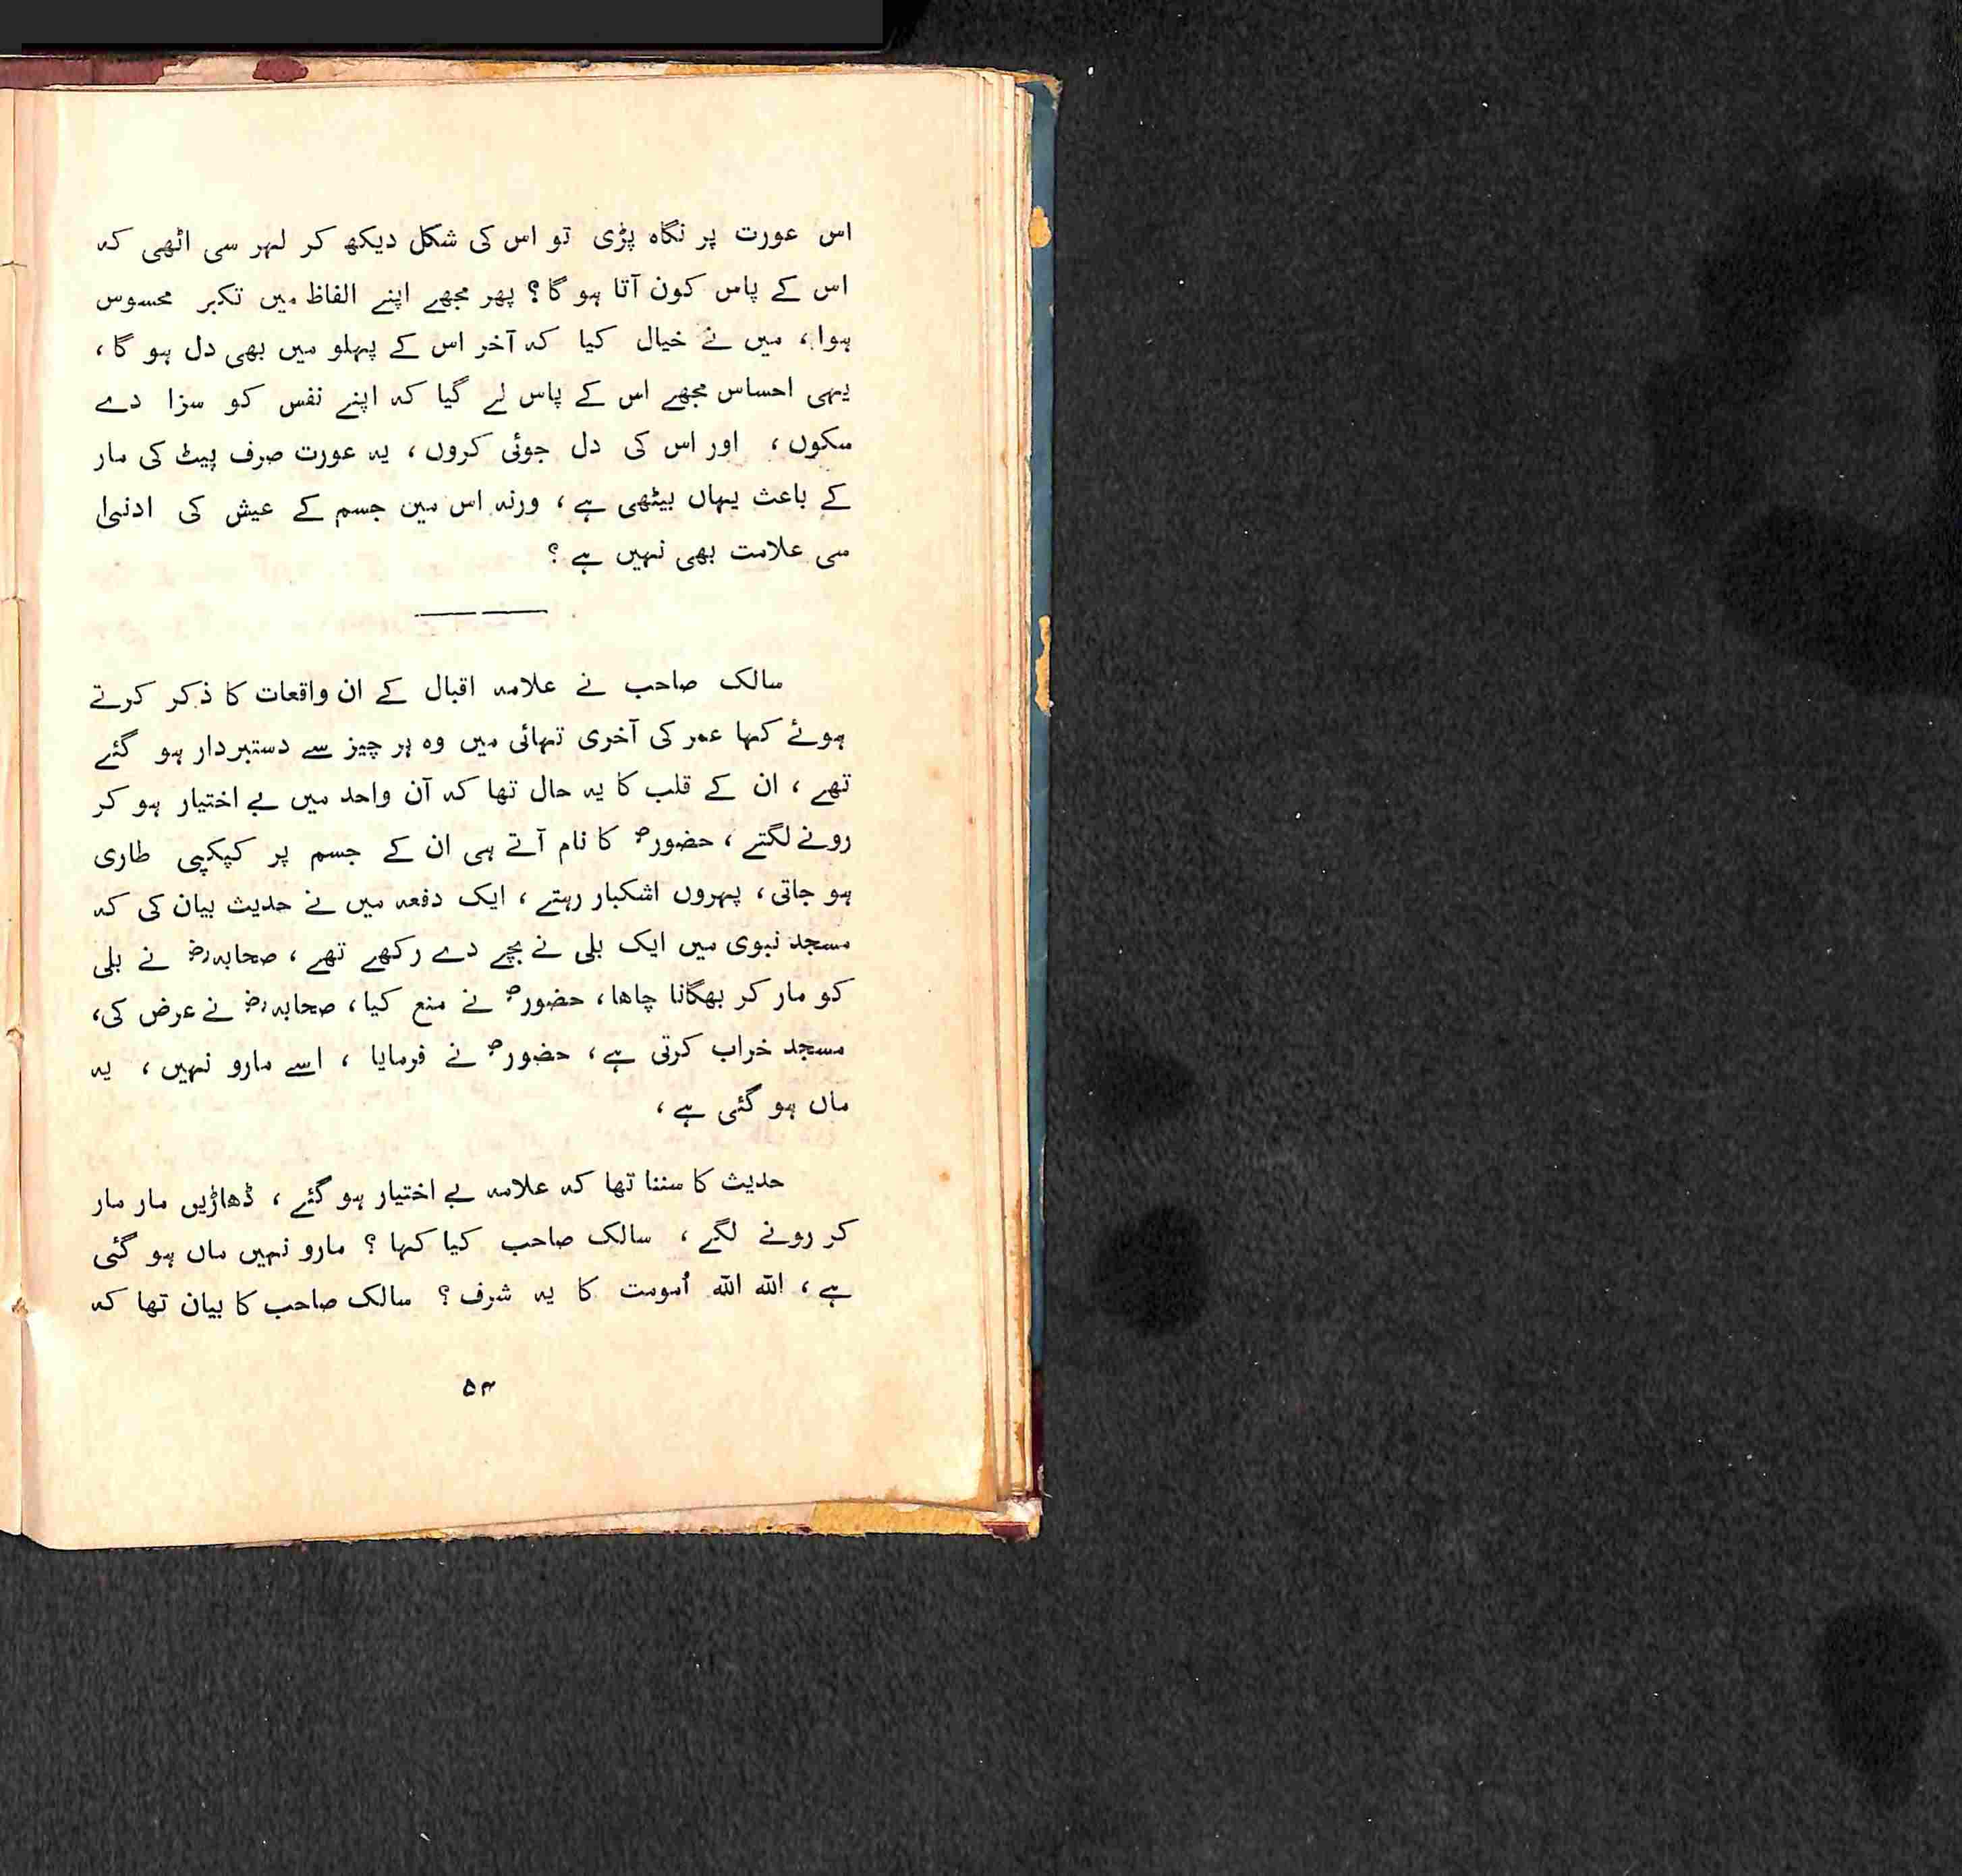 اس عورت پر نگاہ پڑی تو اس کی شکل دیکھ کر لہر سی اٹھی کہ
اس کے پاس کون آتا ہو گا؟ پھر مجھے اپنے الفاظ میں تکبر محسوس
ہوا، میں نے خیال کیا کہ آخر اس کے پہلو میں بھی دل ہو گا،
یہی احساس مجھے اس کے پاس لے گیا کہ اپنے نفس کو سزا دے
سکوں، اور اس کی دل جوئی کروں، یہ عورت صرف پیٹ کی مار
کے باعث یہاں بیٹھی ہے، ورنہ اس میں جسم کے عیش کی ادنیٰ
سی علامت بھی نہیں ہے؟
سالک صاحب نے علامہ اقبال کے ان واقعات کا ذکر کرتے
ہوئے کہا عمر کی آخری تہائی میں وہ ہر چیز سے دستبردار ہو گئے
تھے، ان کے قلب کا یہ حال تھا کہ آن واحد میں بے اختیار ہو کر
رونے لگتے، حضورؐ کا نام آتے ہی ان کے جسم پر کپکپی طاری
ہو جاتی، پہروں اشکبار رہتے، ایک دفعہ میں نے حدیث بیان کی کہ
مسجد نبوی میں ایک بلی نے بچے دے رکھے تھے، صحابہؓ نے بلی
کو مار کر بھگانا چاھا، حضورؐ نے منع کیا، صحابہؓ نے عرض کی،
مسجد خراب کرتی ہے، حضورؐ نے فرمایا، اسے مارو نہیں، یہ
ماں ہو گئی ہے،
حدیث کا سننا تھا کہ علامہ بے اختیار ہو گئے، ڈھاڑیں مار مار
کر رونے لگے، سالک صاحب کیا کہا؟ مارو نہیں ماں ہو گئی
ہے، اللہ اللہ اُمومت کا یہ شرف؟ سالک صاحب کا بیان تھا کہ